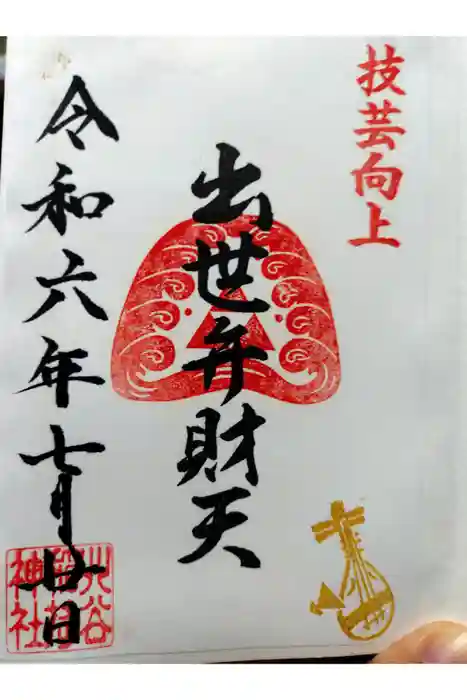 技芸向上
出世弁財天
令和六年七月廿日
稲荷
神社